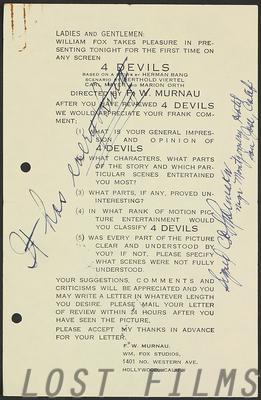 LADIES AND GENTLEMEN:
WILLIAM FOX TAKES PLEASURE IN PRE-
SENTING TONIGHT FOR THE FIRST TIME ON
ANY SCREEN
4 DEVILS
BASED ON A BY HERMAN BANG
SCENARIO BERTHOLD VIERTEL
CARL MAYER AND MARION ORTH
DIRECTED BY F. W. MURNAU
AFTER YOU HAVE REVIEWED 4 DEVILS
WE WOULD APPRECIATE YOUR FRANK COM-
MENT:
(1) WHAT IS YOUR GENERAL IMPRES-
SION AND OPINION OF
4 DEVILS
(2) WHAT CHARACTERS, WHAT PARTS
OF THE STORY AND WHICH PAR-
TICULAR SCENES ENTERTAINED
YOU MOST?
(3) WHAT PARTS, IF ANY, PROVED UN-
INTERESTING?
(4) IN WHAT RANK OF MOTION PIC-
TURE ENTERTAINMENT WOULD
YOU CLASSIFY 4 DEVILS
(5) WAS EVERY PART OF THE PICTURE
CLEAR AND UNDERSTOOD BY
YOU? IF NOT, PLEASE SPECIFY
WHAT SCENES WERE NOT FULLY
UNDERSTOOD.
YOUR SUGGESTIONS, COMMENTS AND
CRITICISMS WILL BE APPRECIATED AND YOU
MAY WRITE A LETTER IN WHATEVER LENGTH
YOU DESIRE. PLEASE MAIL YOUR LETTER
OF REVIEW WITHIN 24 HOURS AFTER YOU
HAVE SEEN THE PICTURE.
PLEASE ACCEPT MY THANKS IN ADVANCE
FOR YOUR LETTER.
F. W. MURNAU.
WM. FOX STUDIOS,
1401 NO. WESTERN AVE.
HOLLYWOOD, CALIF.
It has everything
San Jose Calif
LOST FILMS